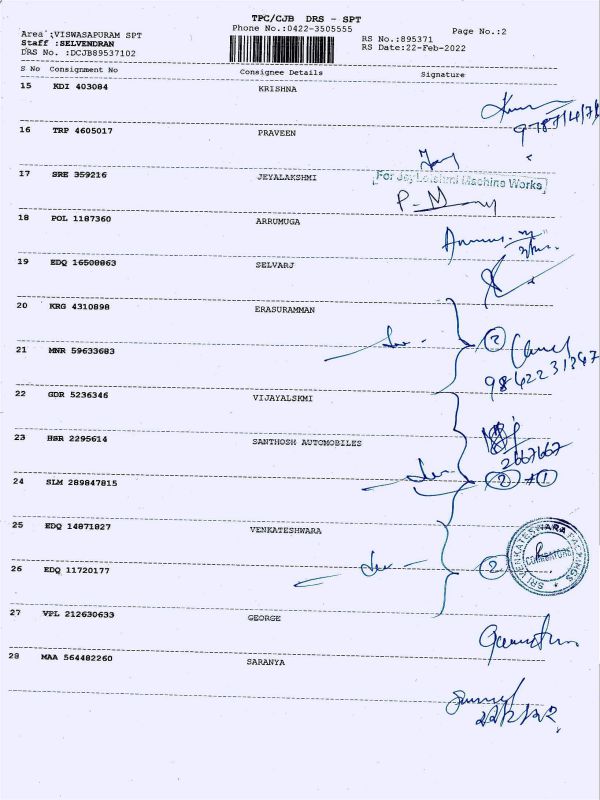 TPC/CJB DRS - SPT
Area :VISWASAPURAM SPT Phone No.:0422-3505555 Page No.:2
Staff :SELVENDRAN RS No.:895371
DRS No. :DCJB89537102 RS Date:22-Feb-2022
S No Consignment No Consignee Details Signature
15 KDI 403084 KRISHNA
16 TRP 4605017 PRAVEEN
17 SRE 359216 JEYALAKSHMI
For Jay Lakshmi Machine Works
18 POL 1187360 ARRUMUGA
19 EDQ 16508863 SELVARJ
20 KRG 4310898 ERASURAMMAN
21 MNR 59633683
22 GDR 5236346 VIJAYALSKMI
23 HSR 2295614 SANTHOSH AUTOMOBILES
2667667
24 SLM 289847815 2 + 1
25 EDQ 14871827 VENKATESHWARA
SRI VENKATESWARA PACKINGS
COIMBATORE
26 EDQ 11720177 2
27 VPL 212630633 GEORGE
28 MAA 564482260 SARANYA